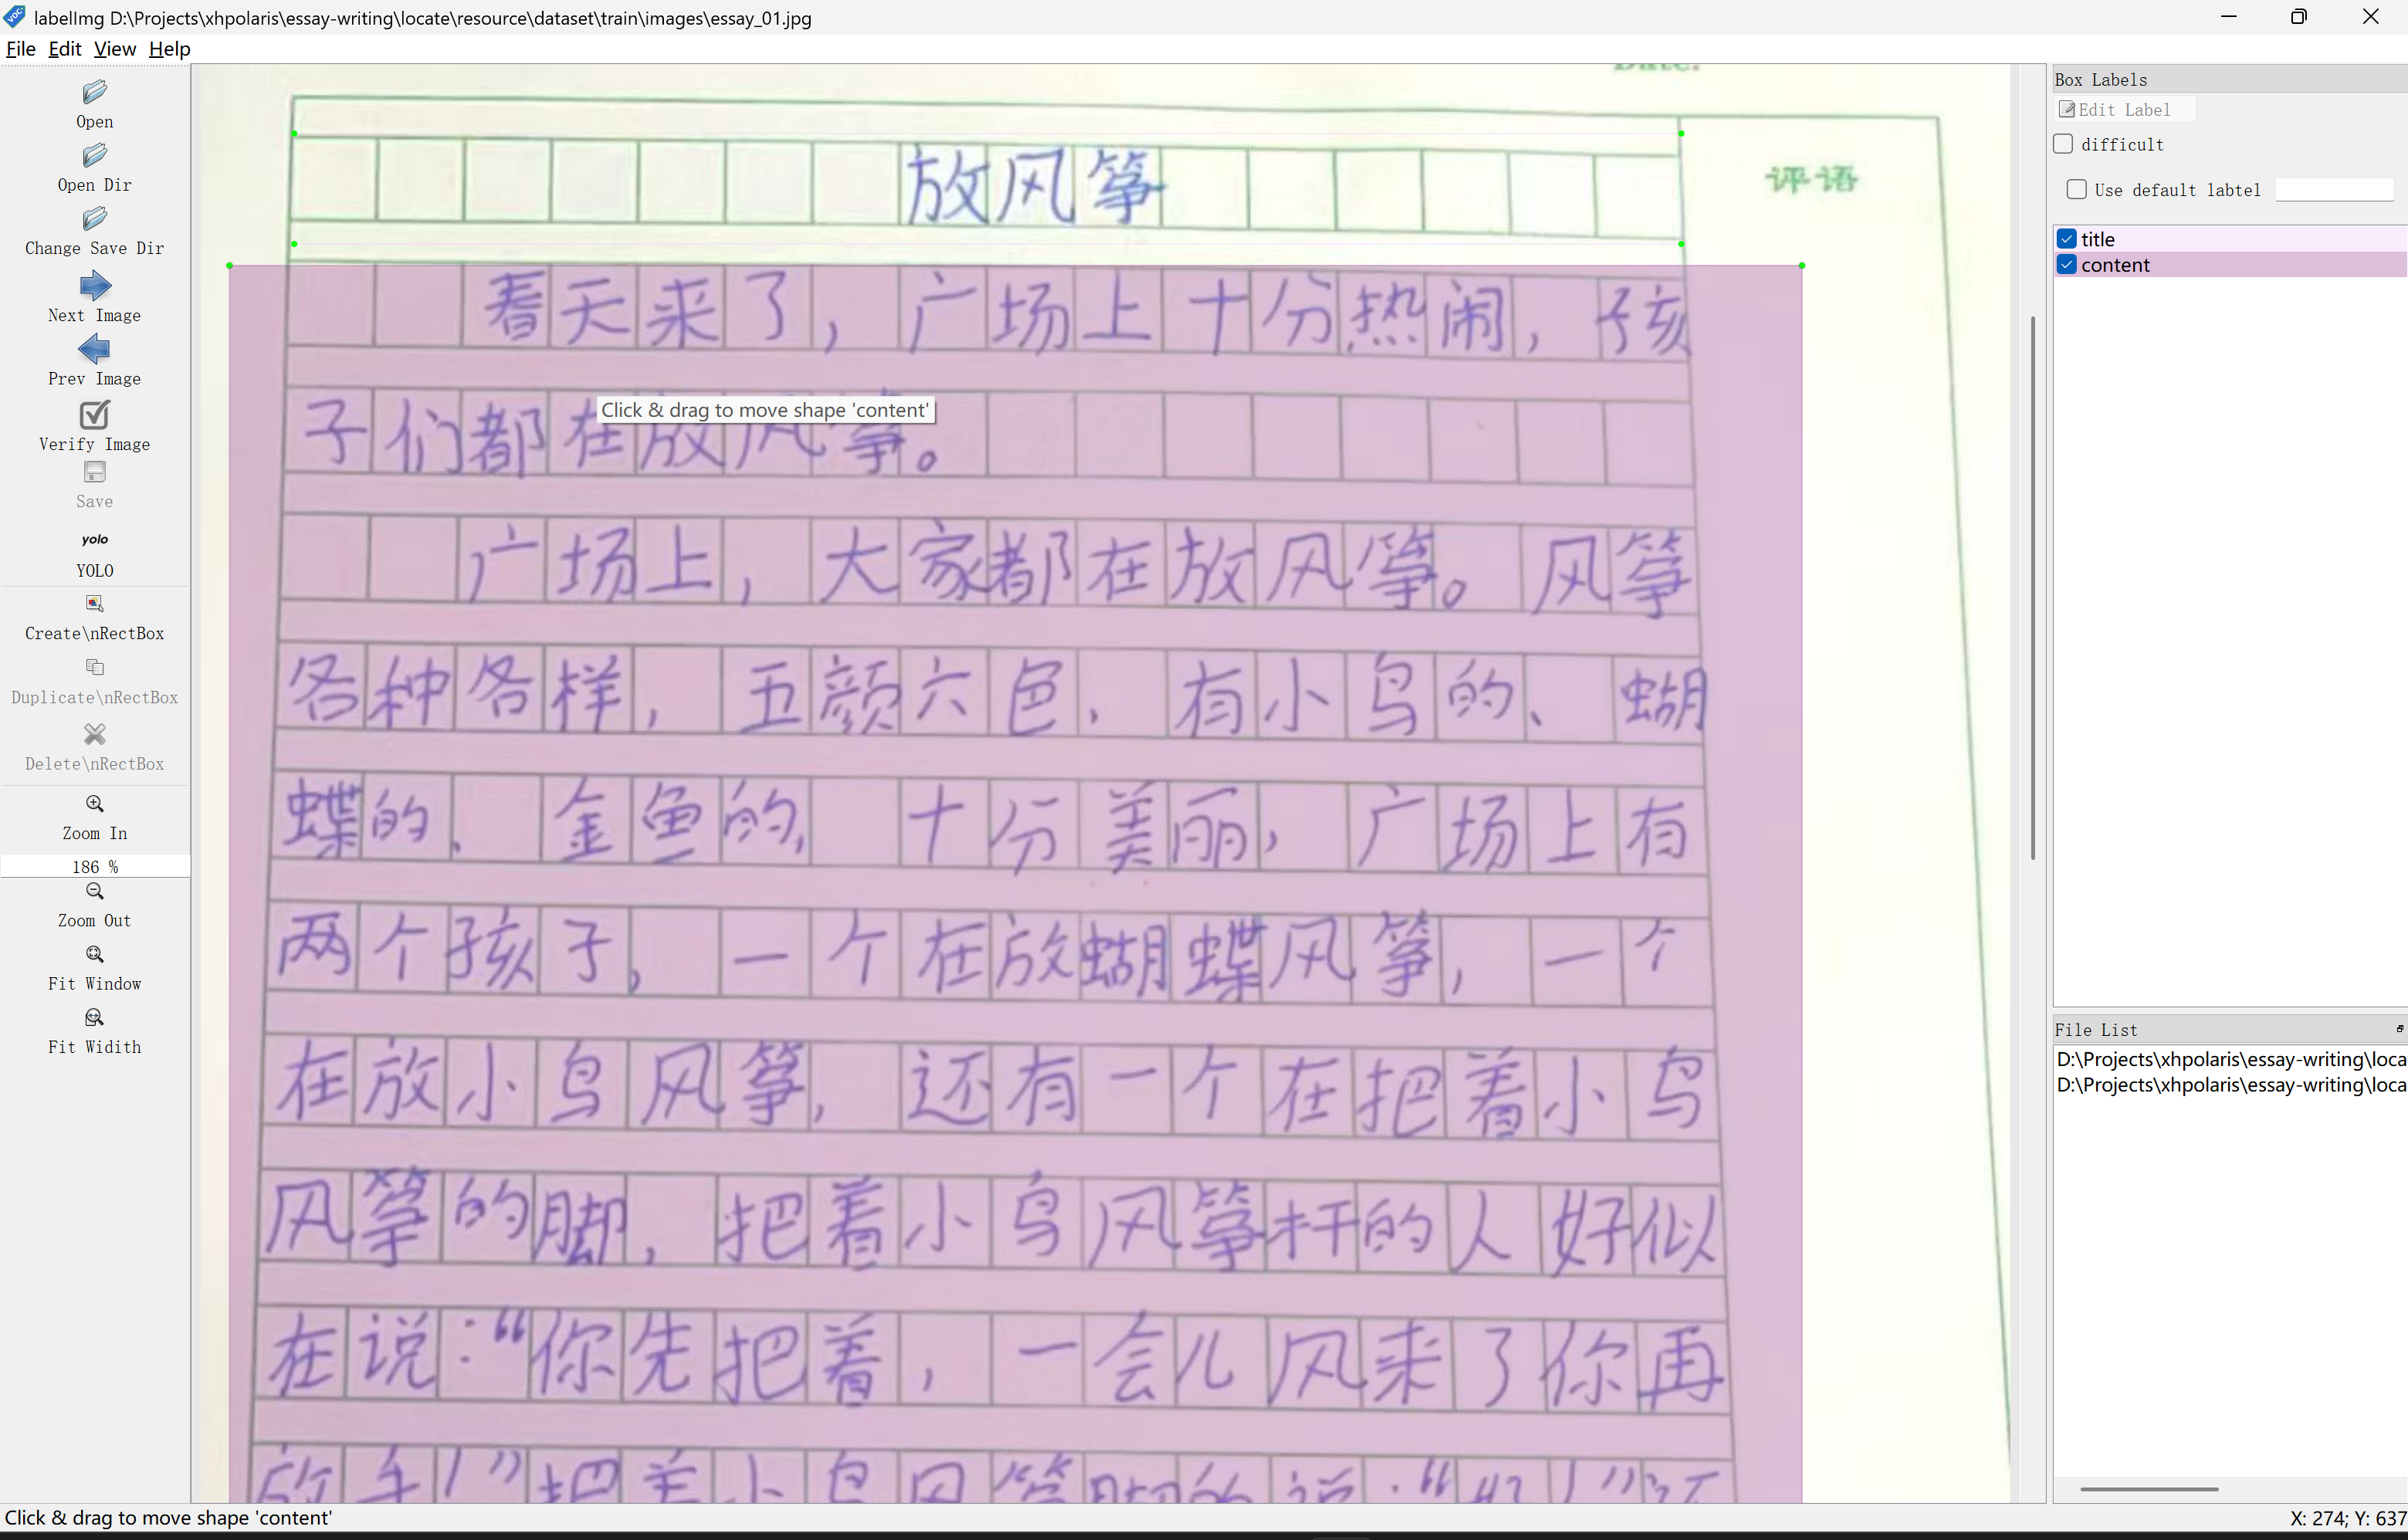 labelImg D:\Projects\xhpolaris\essay-writing\locate\resource\dataset\train\images\essay_01.jpg
File Edit View Help
Open
Open Dir
Change Save Dir
Next Image
Prev Image
Verify Image
Save
yolo
YOLO
Create\nRectBox
Duplicate\nRectBox
Delete\nRectBox
Zoom In
186 %
Zoom Out
Fit Window
Fit Widith
放风筝
评语
春天来了，广场上十分热闹，孩
子们都在放风筝。
Click & drag to move shape 'content'
广场上，大家都在放风筝。风筝
各种各样，五颜六色，有小鸟的、蝴
蝶的、金鱼的，十分美丽，广场上有
两个孩子，一个在放蝴蝶风筝，一个
在放小鸟风筝，还有一个在把着小鸟
风筝的脚，把着小鸟风筝杆的人好似
在说：“你先把着，一会儿风来了你再
放手！”把着小鸟风筝脚的说：“好！”
Box Labels
Edit Label
difficult
Use default labtel
title
content
File List
D:\Projects\xhpolaris\essay-writing\loca
D:\Projects\xhpolaris\essay-writing\loca
Click & drag to move shape 'content'
X: 274; Y: 637